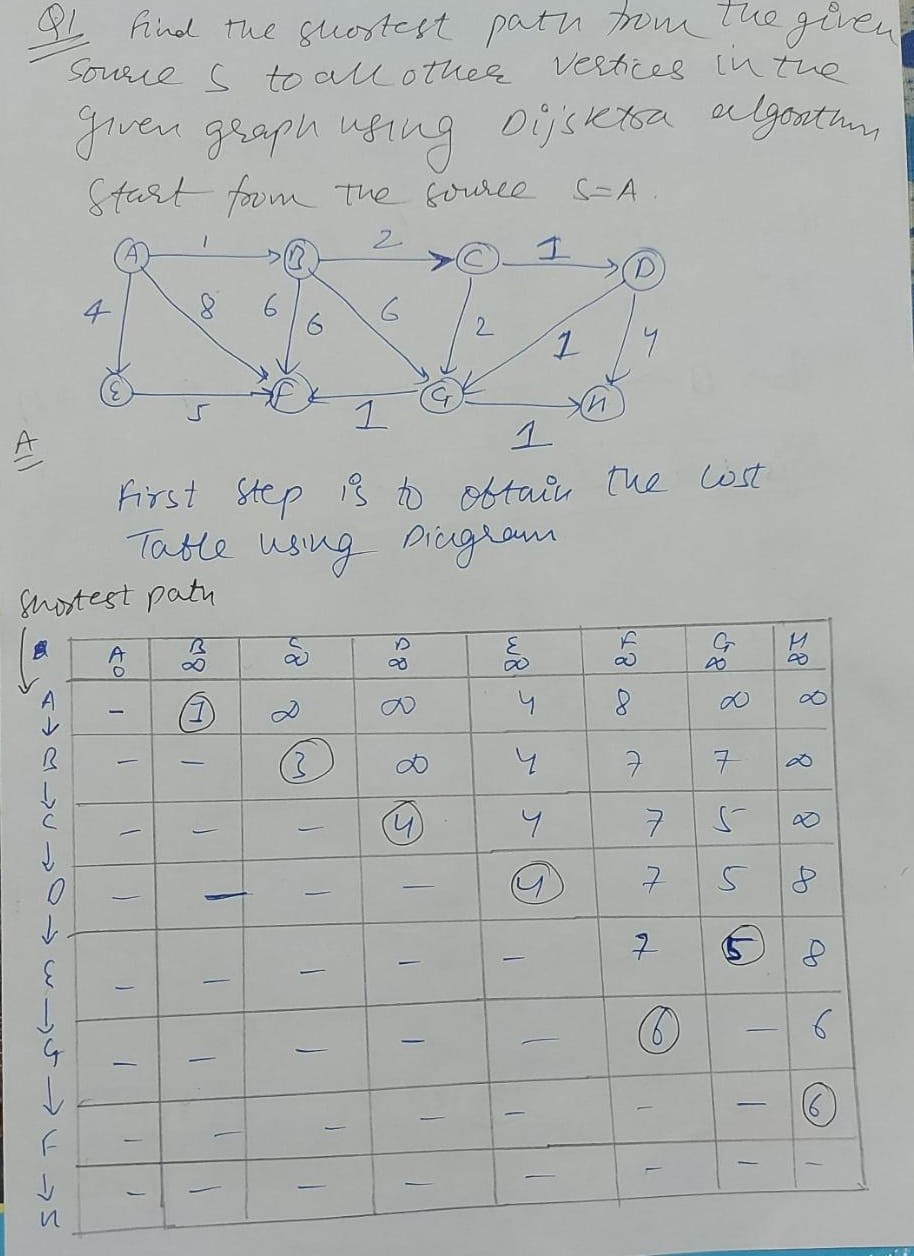 Q1 Find the shortest path from the given
source S to all other vertices in the
given graph using Dijsktra algorithm
Start from the source S=A.
A 1 B 2 C 1 D
4 8 6 6 6 2 1 4
E 5 F 1 G 1 H
A
First step is to obtain the cost
Table using Diagram
shortest path
A B C D E F G H
0 ∞ ∞ ∞ ∞ ∞ ∞ ∞
A - 1 ∞ ∞ 4 8 ∞ ∞
B - - 3 ∞ 4 7 7 ∞
C - - - 4 4 7 5 ∞
D - - - - 4 7 5 8
E - - - - - 7 5 8
G - - - - - 6 - 6
F - - - - - - - 6
H - - - - - - - -